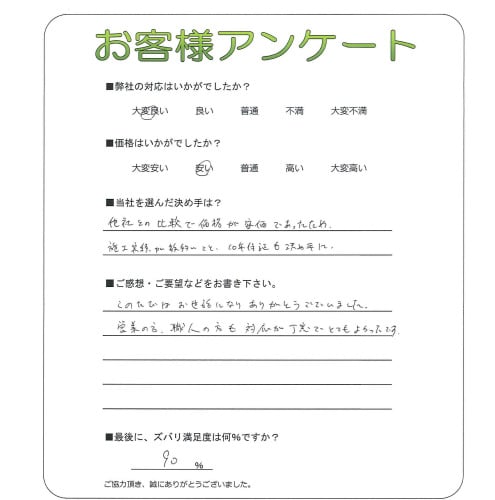 お客様アンケート
■弊社の対応はいかがでしたか？
大変良い 良い 普通 不満 大変不満
■価格はいかがでしたか？
大変安い 安い 普通 高い 大変高い
■当社を選んだ決め手は？
他社との比較で価格が安価であったため.
施工実績が数多いこと、10年保証も決め手に.
■ご感想・ご要望などをお書き下さい。
このたびはお世話になりありがとうございました.
営業の方、職人の方も対応が丁寧でとてもよかったです.
■最後に、ズバリ満足度は何%ですか？
90 %
ご協力頂き、誠にありがとうございました。